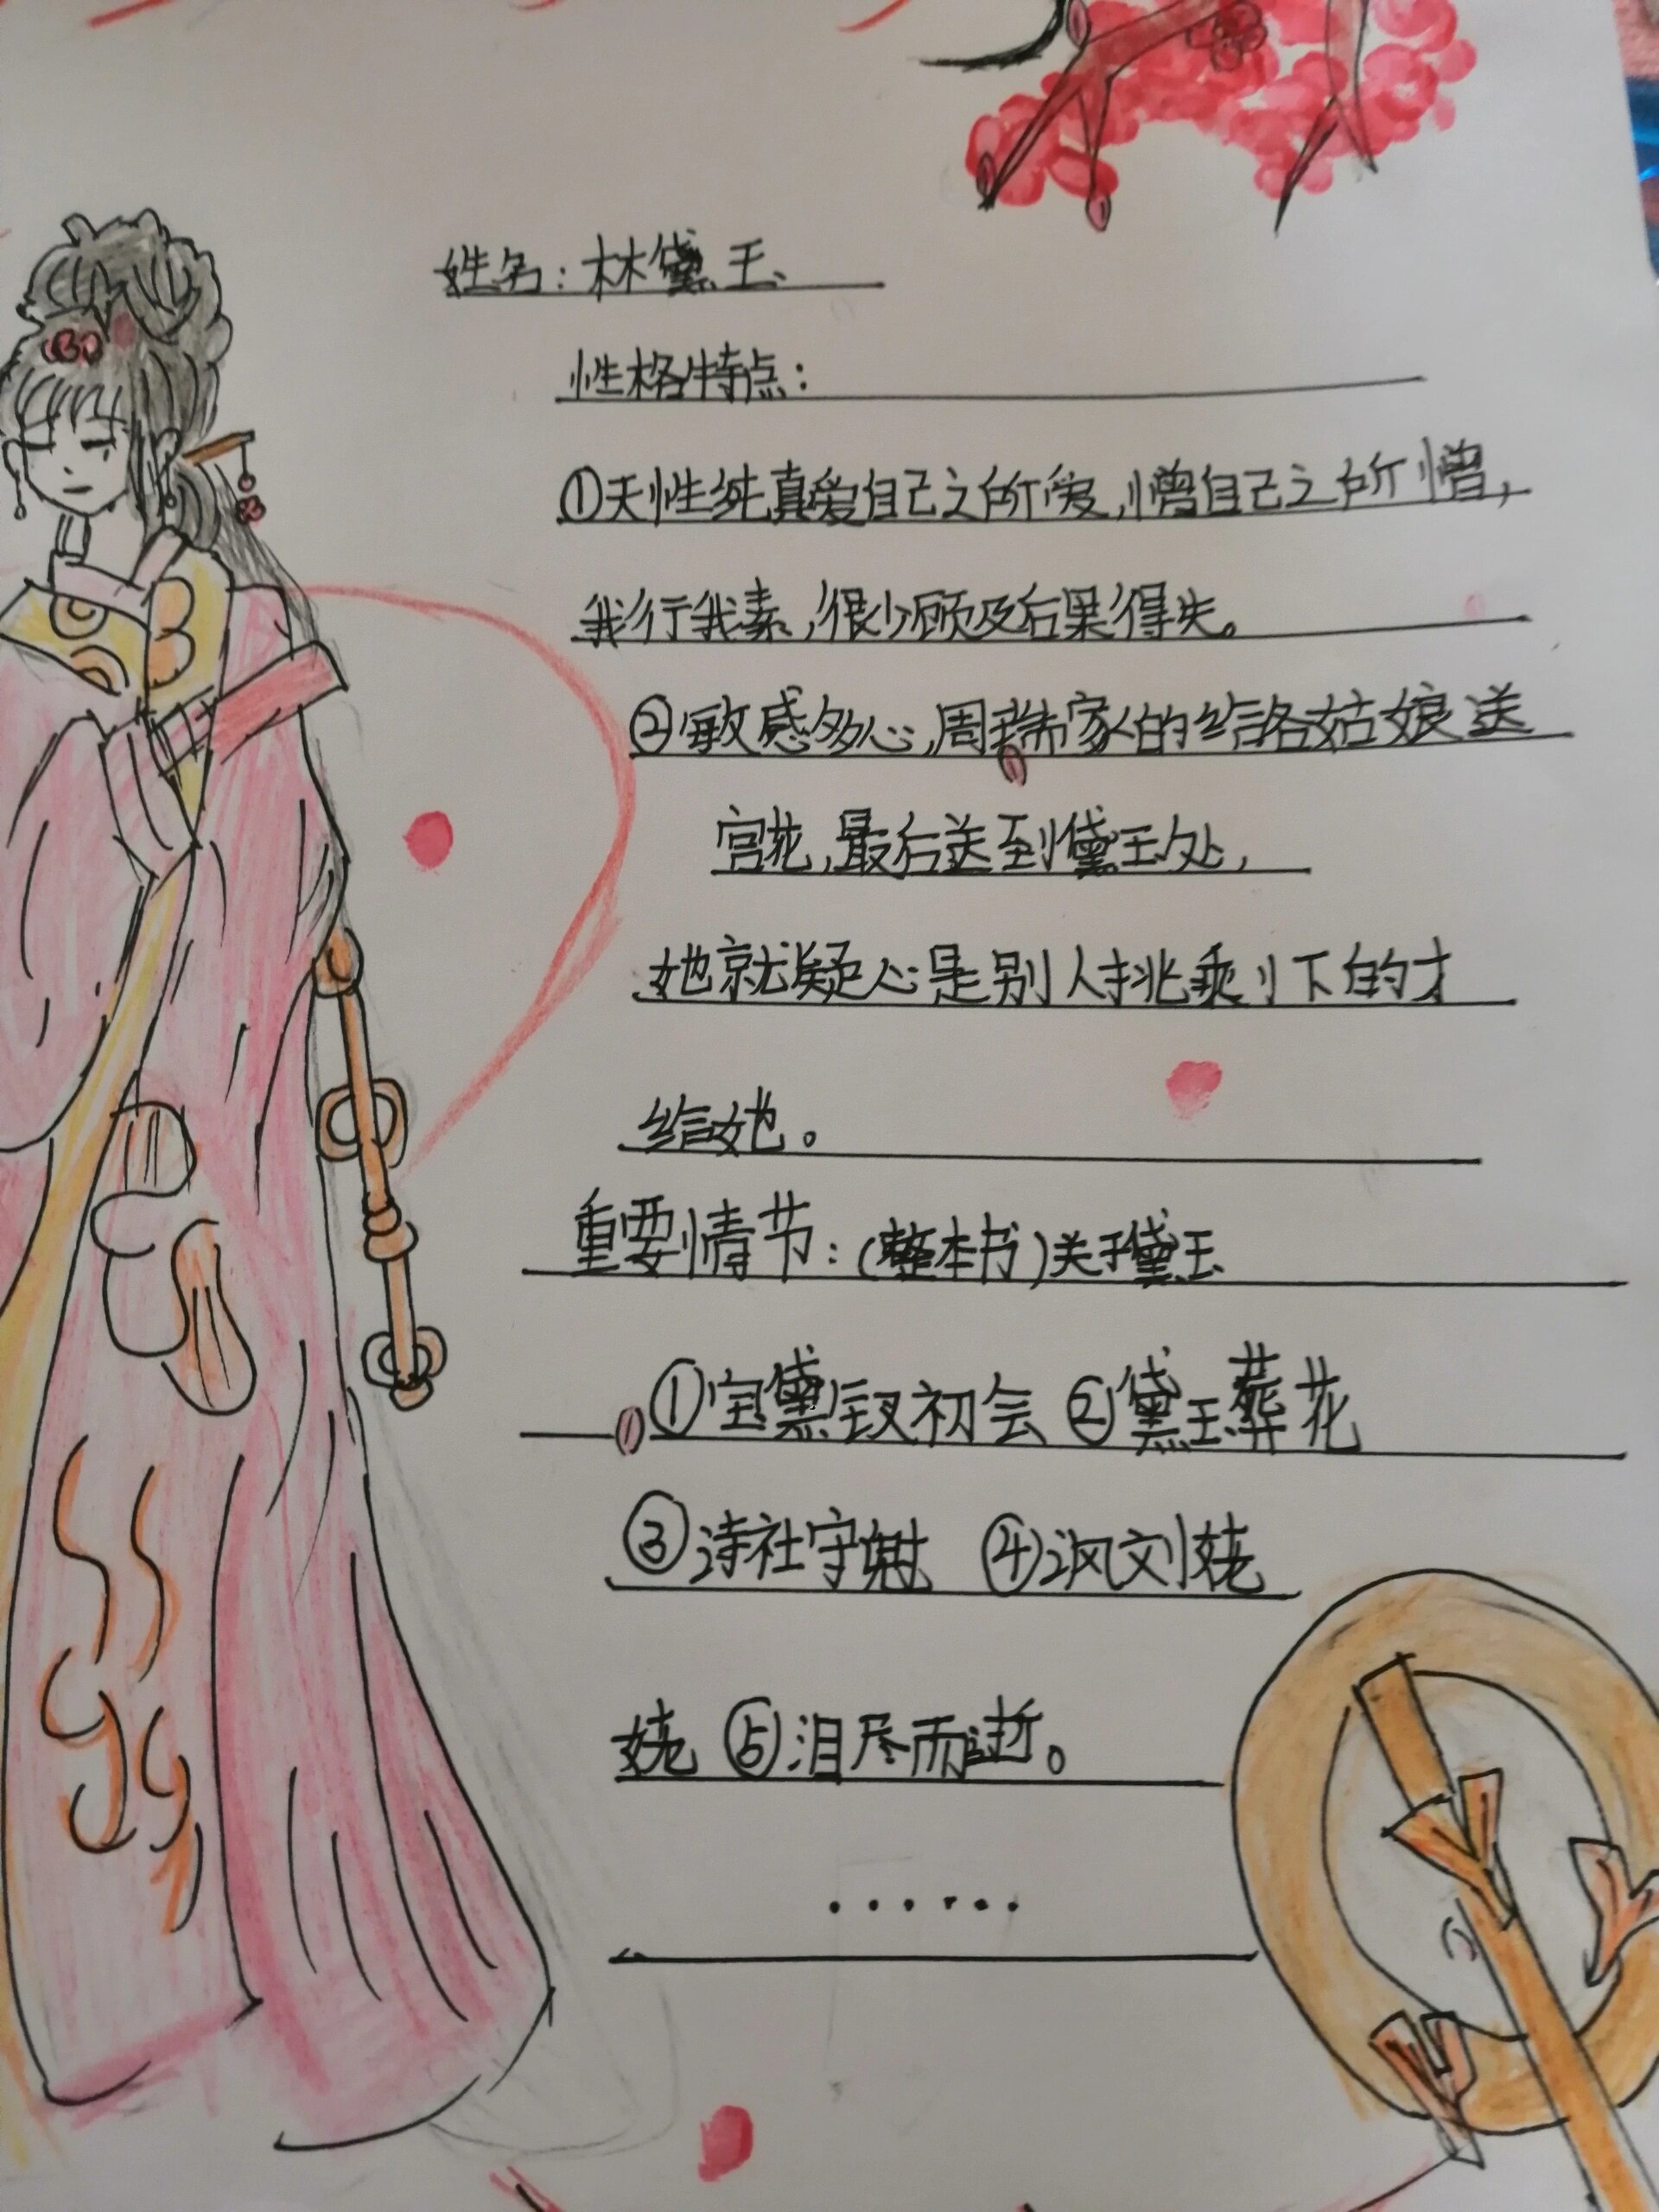 姓名：林黛玉
性格特点：
①天性纯真爱自己之所爱，憎自己之所憎，
我行我素，很少顾及后果得失。
②敏感多心，周瑞家的给各姑娘送
宫花，最后送到黛玉处，
她就疑心是别人挑剩下的才
给她。
重要情节：（整本书）关于黛玉
①宝黛钗初会 ②黛玉葬花
③诗社守谢 ④讽刘姥
姥 ⑤泪尽而逝。
······